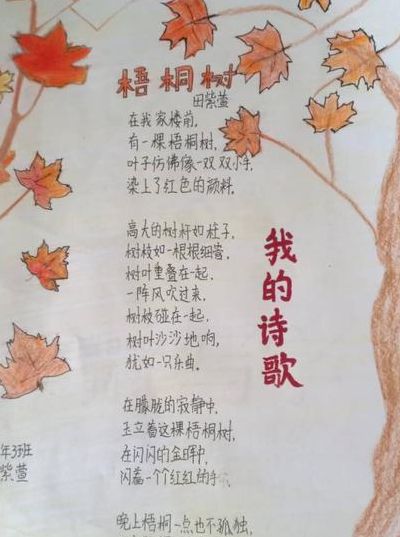 梧桐树
田紫萱
在我家楼前,
有一棵梧桐树,
叶子仿佛像一双双小手,
染上了红色的颜料.
高大的树杆如柱子,
树枝如一根根细管,
树叶重叠在一起,
一阵风吹过来,
树枝碰在一起,
树叶沙沙地响,
犹如一只乐曲.
在朦胧的寂静中,
玉立着这棵梧桐树,
在闪闪的金晖中,
闪着一个个红红的手
晚上梧桐一点也不孤独,
我的诗歌
年3班
紫萱